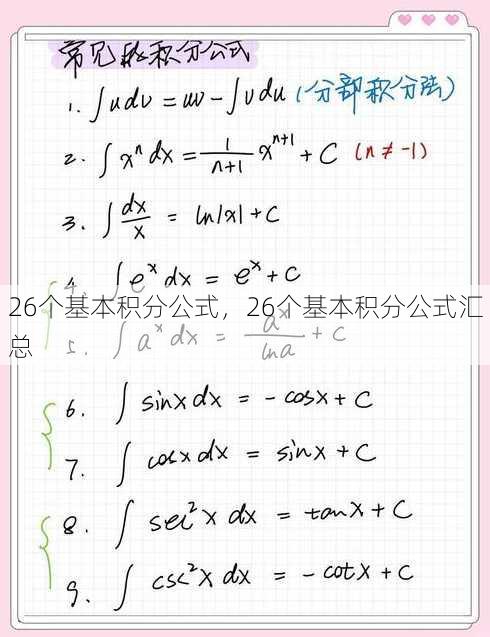 常见的积分公式
1. ∫udv = uv - ∫vdu (分部积分法)
2. ∫xⁿ dx = 1/(n+1) xⁿ⁺¹ + C (n ≠ -1)
3. ∫dx/x = ln|x| + C
4. ∫eˣ dx = eˣ + C
26个基本积分公式，26个基本积分公式汇
总
5. ∫aˣ dx = aˣ/lna + C
6. ∫sinx dx = -cosx + C
7. ∫cosx dx = sinx + C
8. ∫sec²x dx = tanx + C
9. ∫csc²x dx = -cotx + C